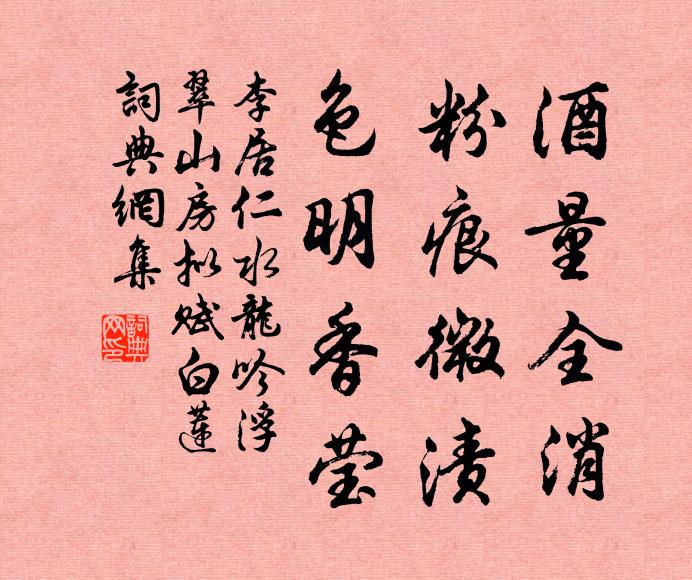 酒量全消
粉痕微渍
色明香莹
李居仁水龍吟浮
翠山房拟赋白蓮
詞典網集
詞典网印